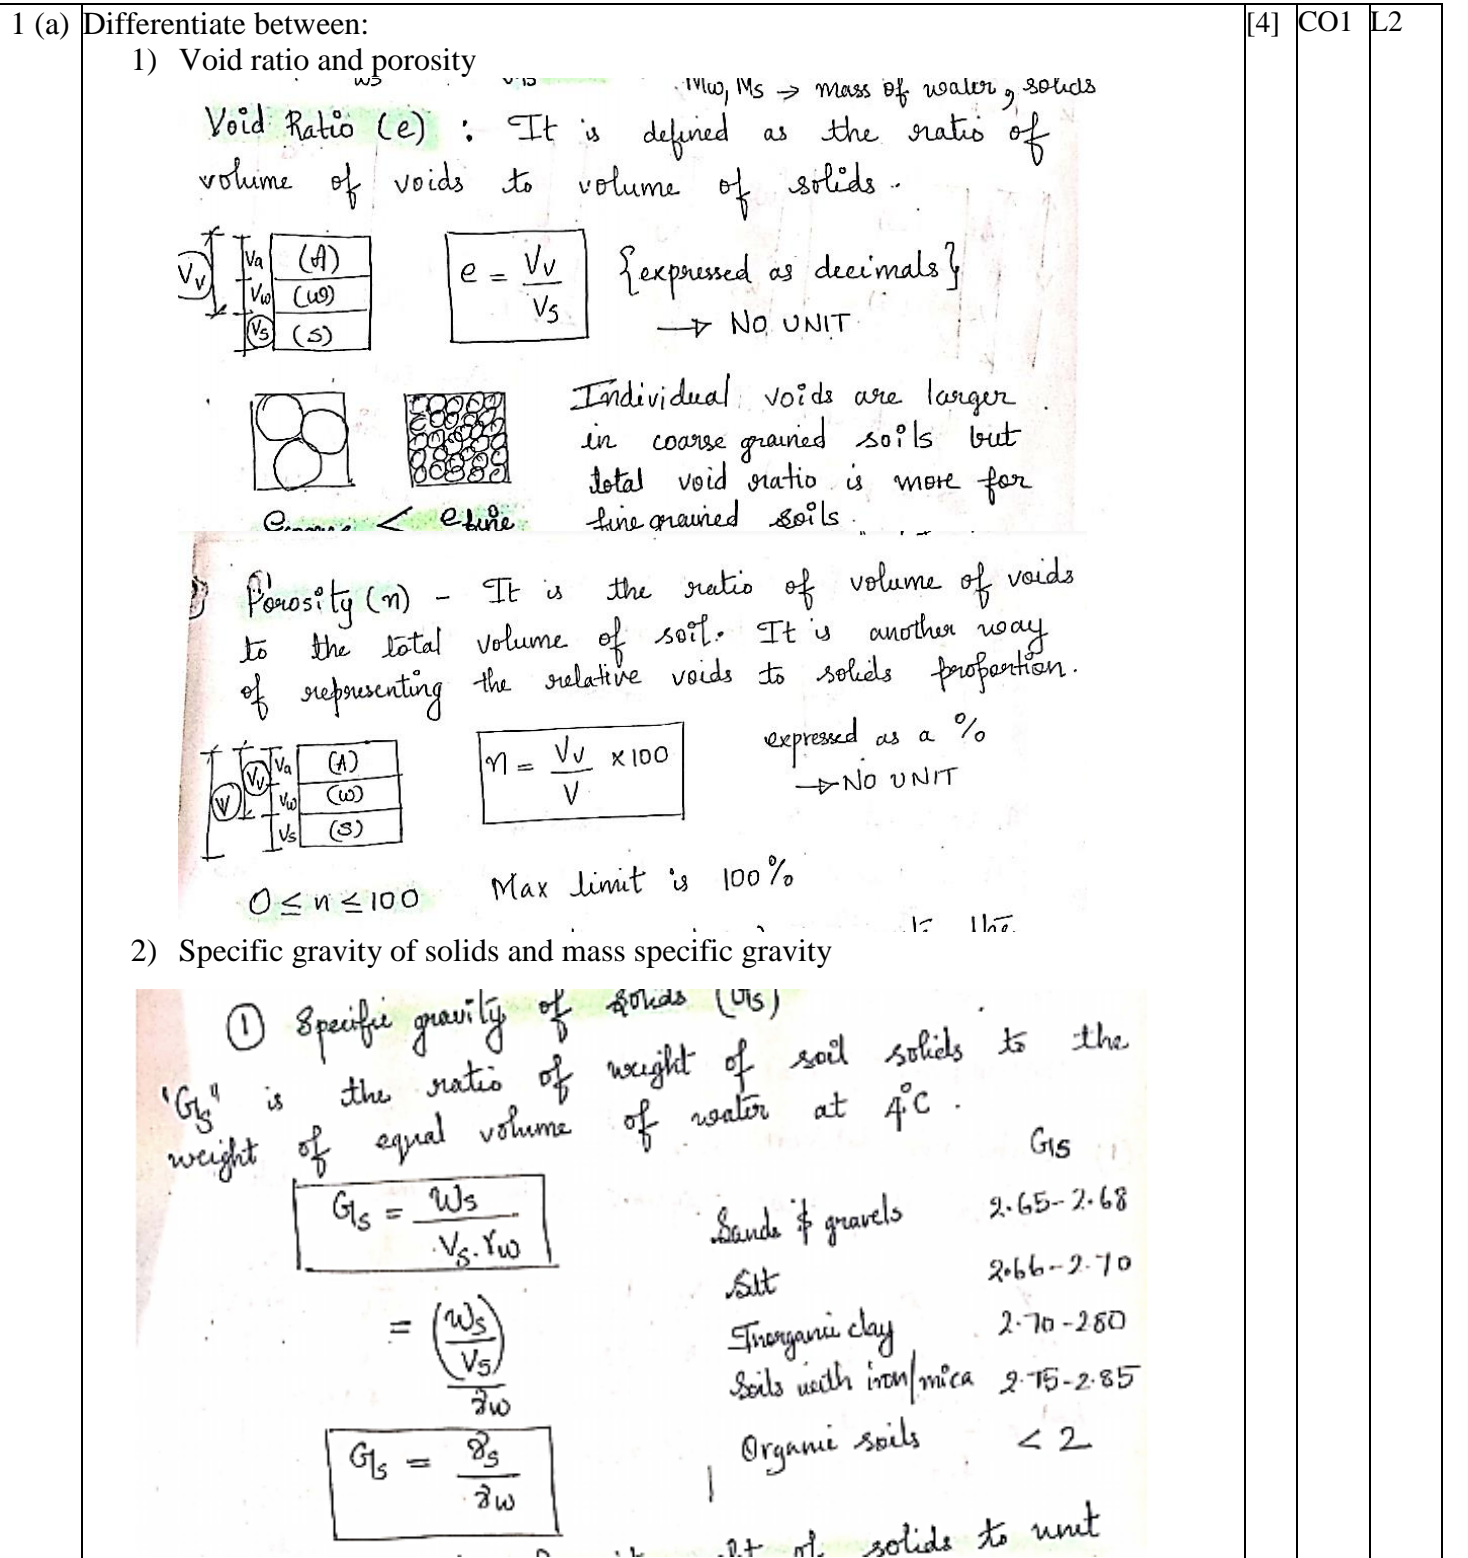 1 (a) Differentiate between: [4] CO1 L2
1) Void ratio and porosity
Mw, Ms → mass of water, solids
Void Ratio (e) : It is defined as the ratio of
volume of voids to volume of solids.
Vv Va (A)
Vw (w)
Vs (S)
e = Vv / Vs {expressed as decimals}
→ NO UNIT
Individual voids are larger
in coarse grained soils but
total void ratio is more for
fine grained soils.
< e fine
Porosity (n) - It is the ratio of volume of voids
to the total volume of soil. It is another way
of representing the relative voids to solids proportion.
V Vv Va (A)
Vw (w)
Vs (S)
n = Vv / V × 100
expressed as a %
→ NO UNIT
0 ≤ n ≤ 100 Max limit is 100%
the
2) Specific gravity of solids and mass specific gravity
① Specific gravity of solids (Gs)
"Gs" is the ratio of weight of soil solids to the
weight of equal volume of water at 4°C.
Gs
Gs = Ws / Vs.γw
Sands & gravels 2.65-2.68
Silt 2.66-2.70
= (Ws / Vs) / γw
Inorganic clay 2.70-280
Soils with iron/mica 2.75-2.85
Gs = γs / γw
Organic soils < 2
of solids to unit